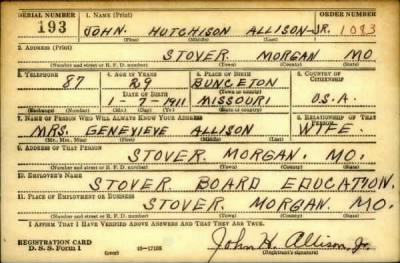 SERIAL NUMBER 1. NAME (Print)
193 JOHN HUTCHISON ALLISON JR. 1083
(First) (Middle) (Last)
2. ADDRESS (Print)
STOVER MORGAN MO
(Number and street or R. F. D. number) (Town) (County) (State)
3. TELEPHONE 4. AGE IN YEARS 5. PLACE OF BIRTH 6. COUNTRY OF CITIZENSHIP
87 29 BUNCETON
DATE OF BIRTH (Town or county)
1-7-1911 MISSOURI U.S.A.
(Exchange) (Number) (Mo.) (Day) (Yr.) (State or country)
7. NAME OF PERSON WHO WILL ALWAYS KNOW YOUR ADDRESS 8. RELATIONSHIP OF THAT PERSON
MRS. GENEVIEVE ALLISON WIFE.
(Mr., Mrs., Miss) (First) (Middle) (Last)
9. ADDRESS OF THAT PERSON
STOVER MORGAN. MO.
(Number and street or R. F. D. number) (Town) (County) (State)
10. EMPLOYER'S NAME
STOVER BOARD EDUCATION.
11. PLACE OF EMPLOYMENT OR BUSINESS
STOVER MORGAN MO.
(Number and street or R. F. D. number) (Town) (County) (State)
I AFFIRM THAT I HAVE VERIFIED ABOVE ANSWERS AND THAT THEY ARE TRUE.
REGISTRATION CARD
D. S. S. Form 1 (over) 16-17105 John H. Allison, Jr.
(Registrant's signature)